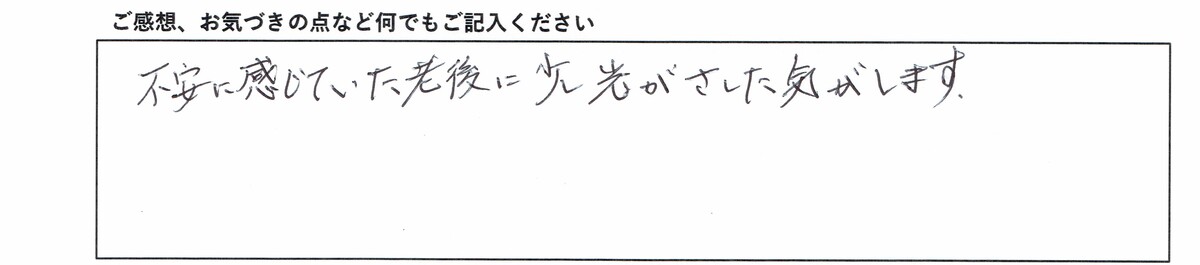 ご感想、お気づきの点など何でもご記入ください
不安に感じていた老後に少し光がさした気がします.